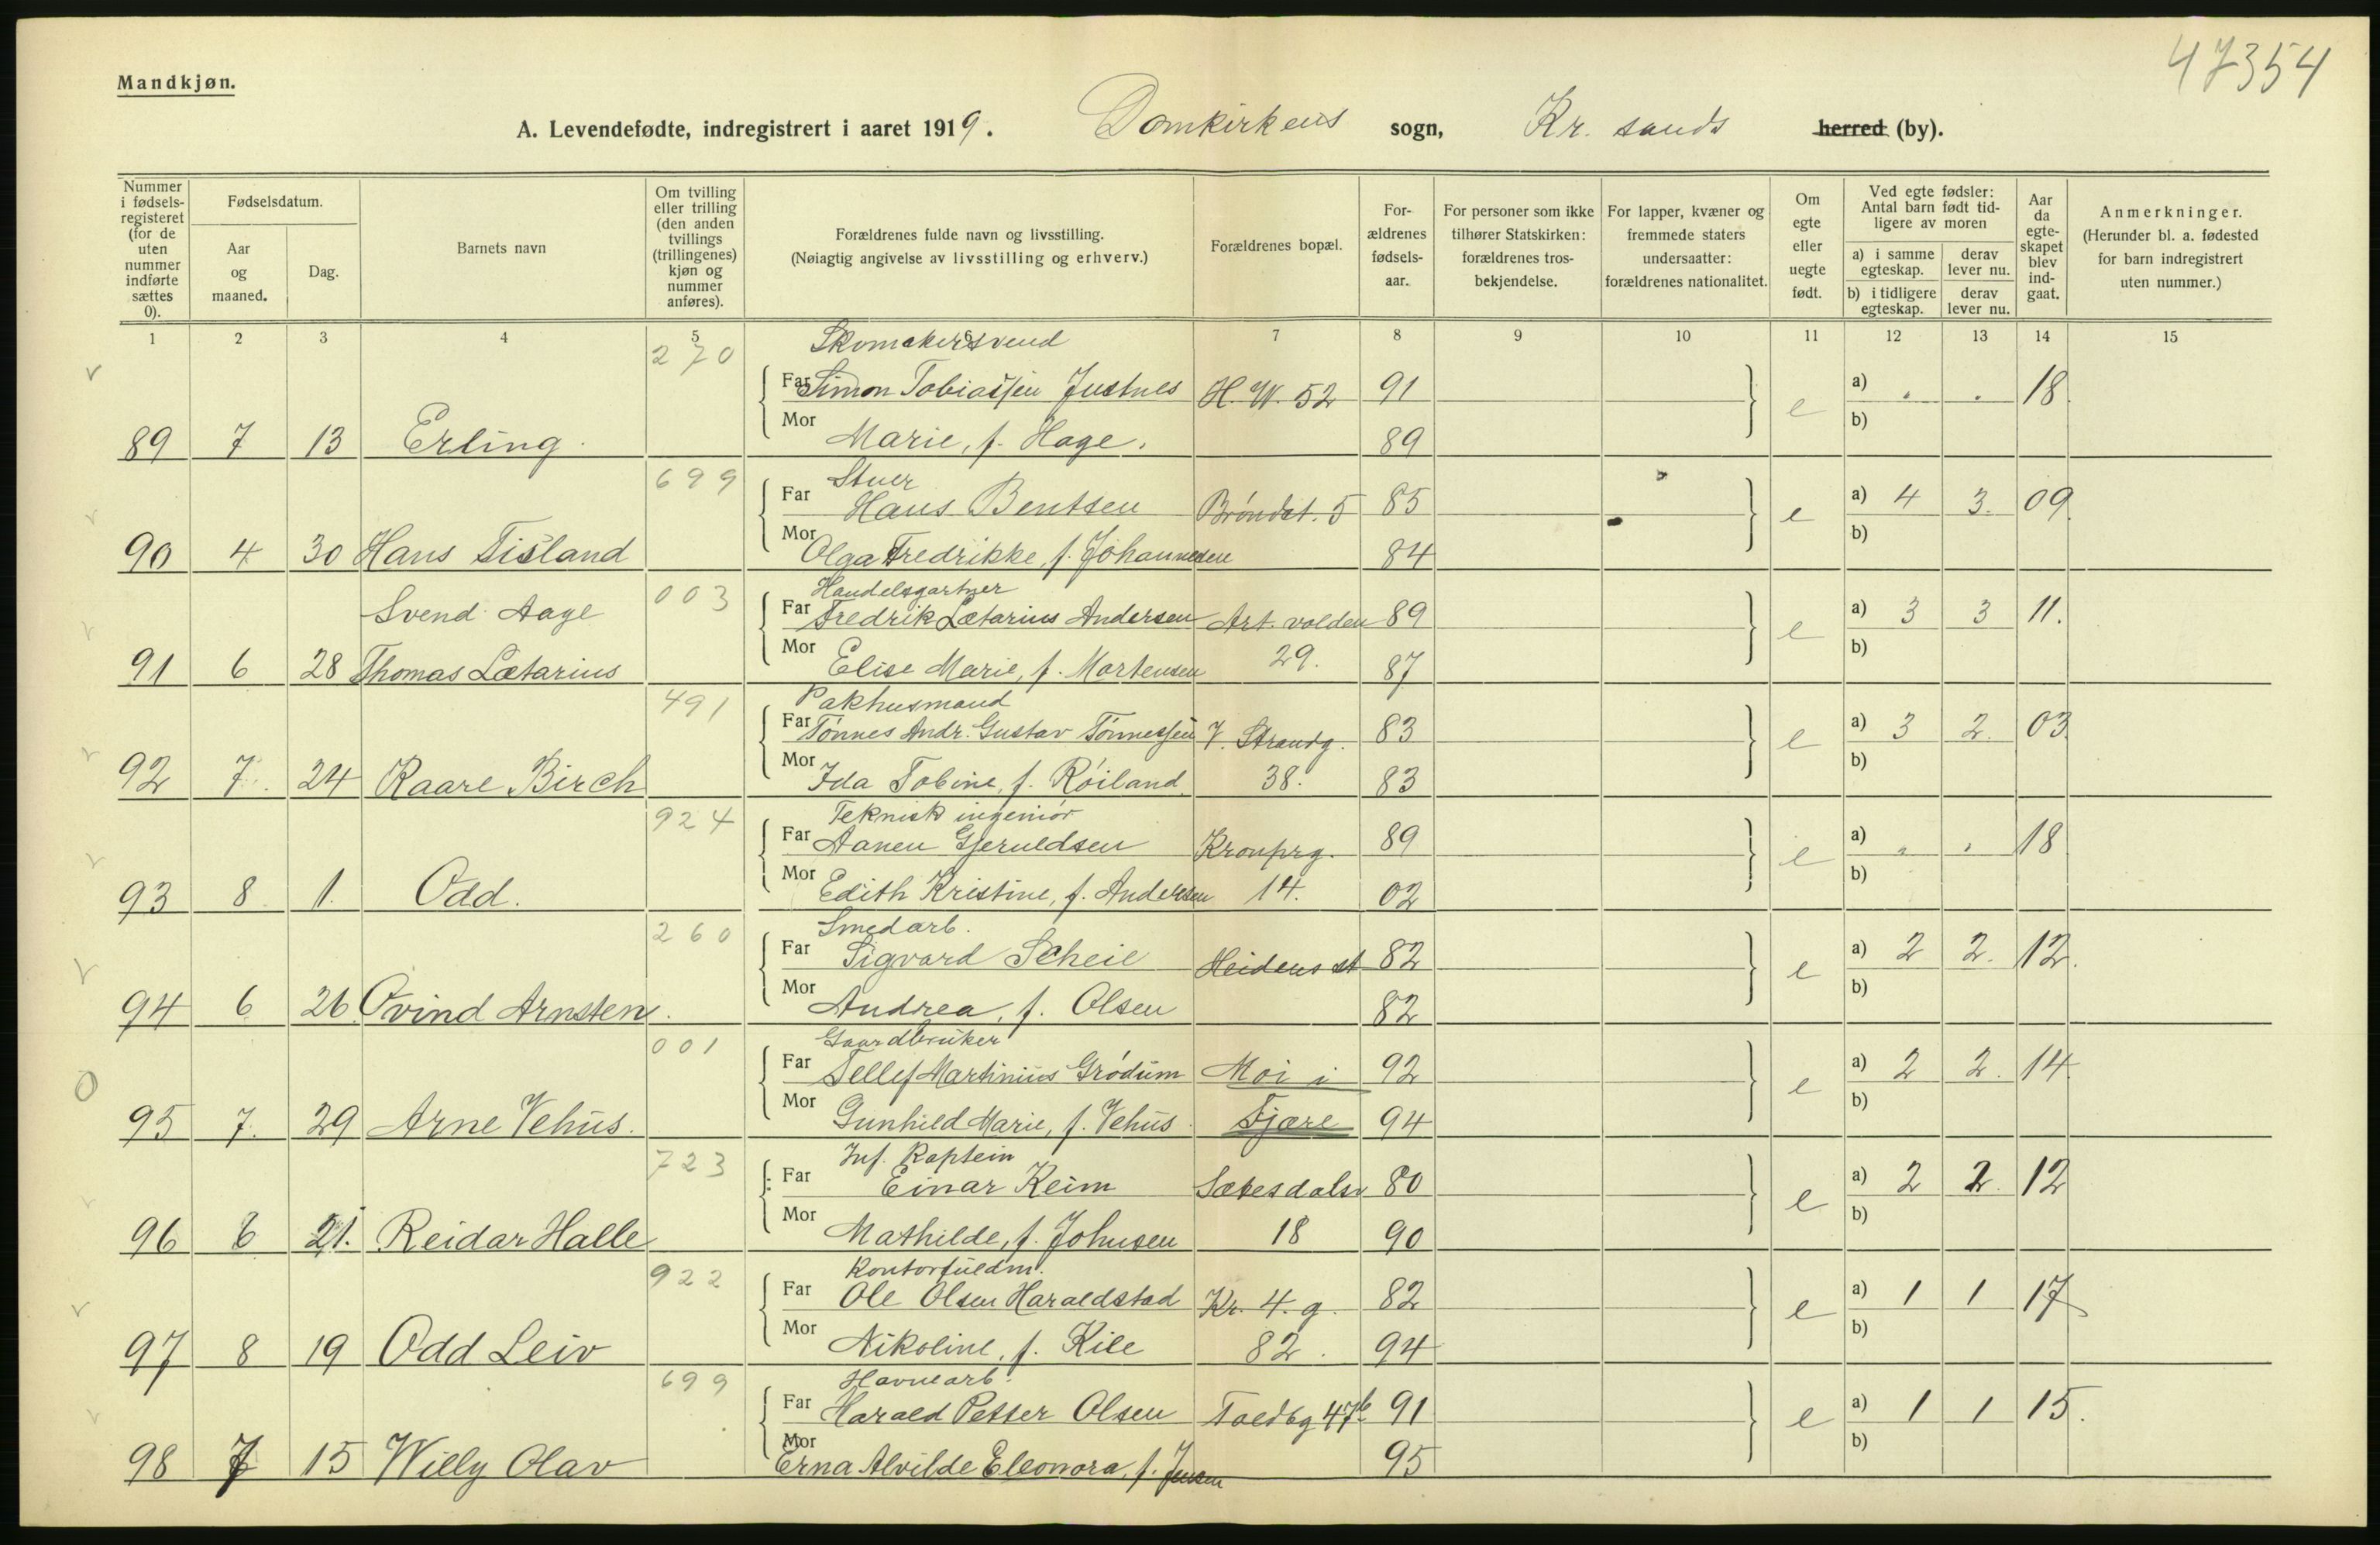 47354
Mandkjøn.
A. Levendefødte, indregistrert i aaret 1919. Domkirkens sogn, Kr. sands herred (by).
Nummer i fødselsregisteret (for de uten nummer indførte sættes 0).
Fødselsdatum.
Aar og maaned.
Dag.
Barnets navn
Om tvilling eller trilling (den anden tvillings (trillingenes) kjøn og nummer anføres).
Forældrenes fulde navn og livsstilling.
(Nøiagtig angivelse av livsstilling og erhverv.)
Forældrenes bopæl.
Forældrenes fødselsaar.
For personer som ikke tilhører Statskirken: forældrenes trosbekjendelse.
For lapper, kvæner og fremmede staters undersaatter: forældrenes nationalitet.
Om egte eller uegte født.
Ved egte fødsler: Antal barn født tidligere av moren
a) i samme egteskap. derav lever nu.
b) i tidligere egteskap. derav lever nu.
Aar da egteskapet blev indgaat.
Anmerkninger.
(Herunder bl. a. fødested for barn indregistrert uten nummer.)
1 2 3 4 5 6 7 8 9 10 11 12 13 14 15
270 Skomakersvend
Far Simon Tobiassen Justnes H. W. 52 91 e a) . . 18
89 7 13 Erling. Mor Marie, f. Hage. 89 b)
699 Stuer
Far Hans Bentsen Brøndst. 5 85 e a) 4 3. 09.
90 4 30 Hans Tisland Mor Olga Fredrikke, f. Johannesen 84 b)
Svend Aage 003 Handelsgartner
Far Fredrik Lætarius Andersen Art. volden 89 e a) 3 3 11.
91 6 28 Thomas Lætarius Mor Elise Marie, f. Mortensen 29. 87 b)
491 Pakhusmand
Far Tønnes Andr. Gustav Tønnessen V. Strandg. 83 e a) 3 2. 03.
92 7. 24 Kaare Birch Mor Ida Tobine, f. Røiland 38. 83 b)
924 Teknisk ingeniør
Far Aanen Gjeruldsen Kronprg. 89 e a) . . 18
93 8 1. Odd. Mor Edith Kristine, f. Andersen 14. 02 b)
260 Smedarb.
Far Sigvard Scheie Heidens st 82 e a) 2 2. 12.
94 6 26 Øvind Arnsten. Mor Andrea, f. Olsen 82 b)
001 Gaardbruker
Far Tellef Martinius Grødum Moi i 92 e a) 2 2. 14.
95 7. 29 Arne Vehus. Mor Gunhild Marie, f. Vehus Fjære 94 b)
723 Inf. Kaptein
Far Einar Keim Sætesdalsv 80 e a) 2 2. 12
96 6 21. Reidar Halle Mor Mathilde, f. Johnsen 18 90 b)
922 Kontorfuldm.
Far Ole Olsen Haraldstad Kr. 4. g. 82 e a) 1 1 17
97 8 19 Odd Leiv Mor Nikoline, f. Kile 82. 94 b)
699 Havnearb.
Far Harald Petter Olsen Toldbg 47b 91 e a) 1 1 15.
98 7 15 Willy Olav Mor Erna Alvilde Eleonora, f. Jensen 95 b)